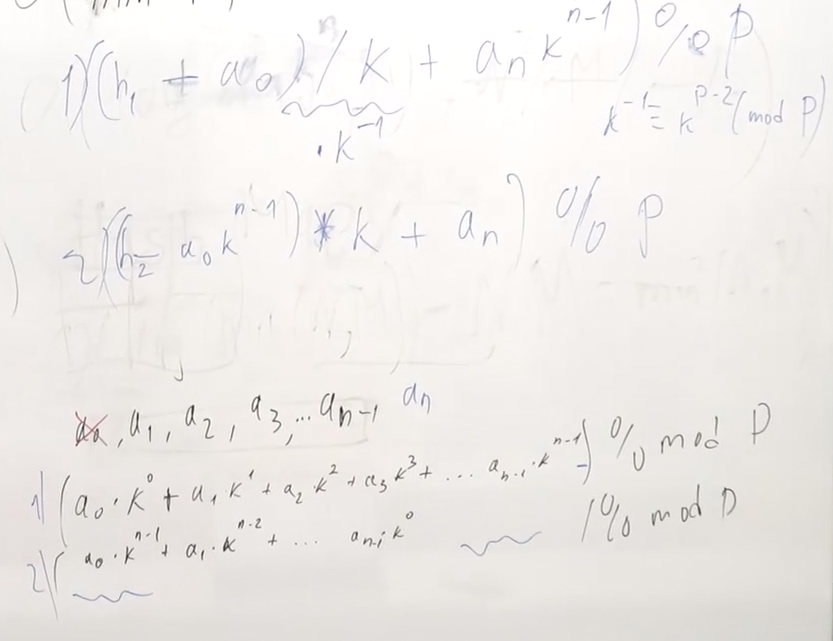 1) ((h₁ + a₀) / k + aₙ kⁿ⁻¹) % p
· k⁻¹
k⁻¹ ≡ k^(p-2) (mod p)
2) ((h₂ - a₀ kⁿ⁻¹) * k + aₙ) % p
a₀, a₁, a₂, a₃, ... aₙ₋₁ aₙ
1) (a₀ · k⁰ + a₁ · k¹ + a₂ · k² + a₃ k³ + ... aₙ₋₁ · kⁿ⁻¹) % mod p
2) ( a₀ · kⁿ⁻¹ + a₁ · kⁿ⁻² + ... aₙ₋₁ · k⁰ ) % mod p